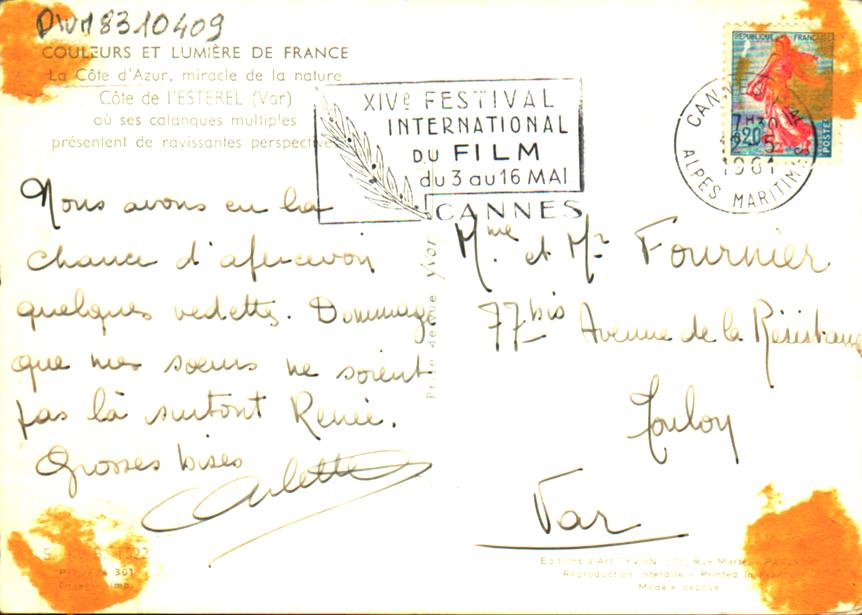 DIVM8310409
COULEURS ET LUMIÈRE DE FRANCE
La Côte d'Azur, miracle de la nature
Côte de l'ESTEREL (Var)
où ses calanques multiples
présentent de ravissantes perspectives
XIVe FESTIVAL
INTERNATIONAL
DU FILM
du 3 au 16 MAI
CANNES
REPUBLIQUE FRANÇAISE
0,20
POSTES
CANNES
7H30
1961
ALPES MARITIMES
Nous avons eu la
chance d'apercevoir
quelques vedettes. Dommage
que mes soeurs ne soient
pas là surtout Renée.
Grosses bises
Arlette
Yvon
Mme et Mr Fournier
77 bis Avenue de la Résistance
Toulon
Var
Editions d'Art YVON, Rue
Reproduction interdite - Printed in France
Modèle déposé